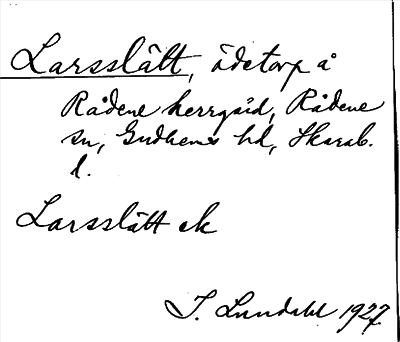 Larsslätt, ödetorp å
Rådene herrgård, Rådene
sn, Gudhems hd, Skarab.
l.
Larsslätt ek
I. Lundahl 1927